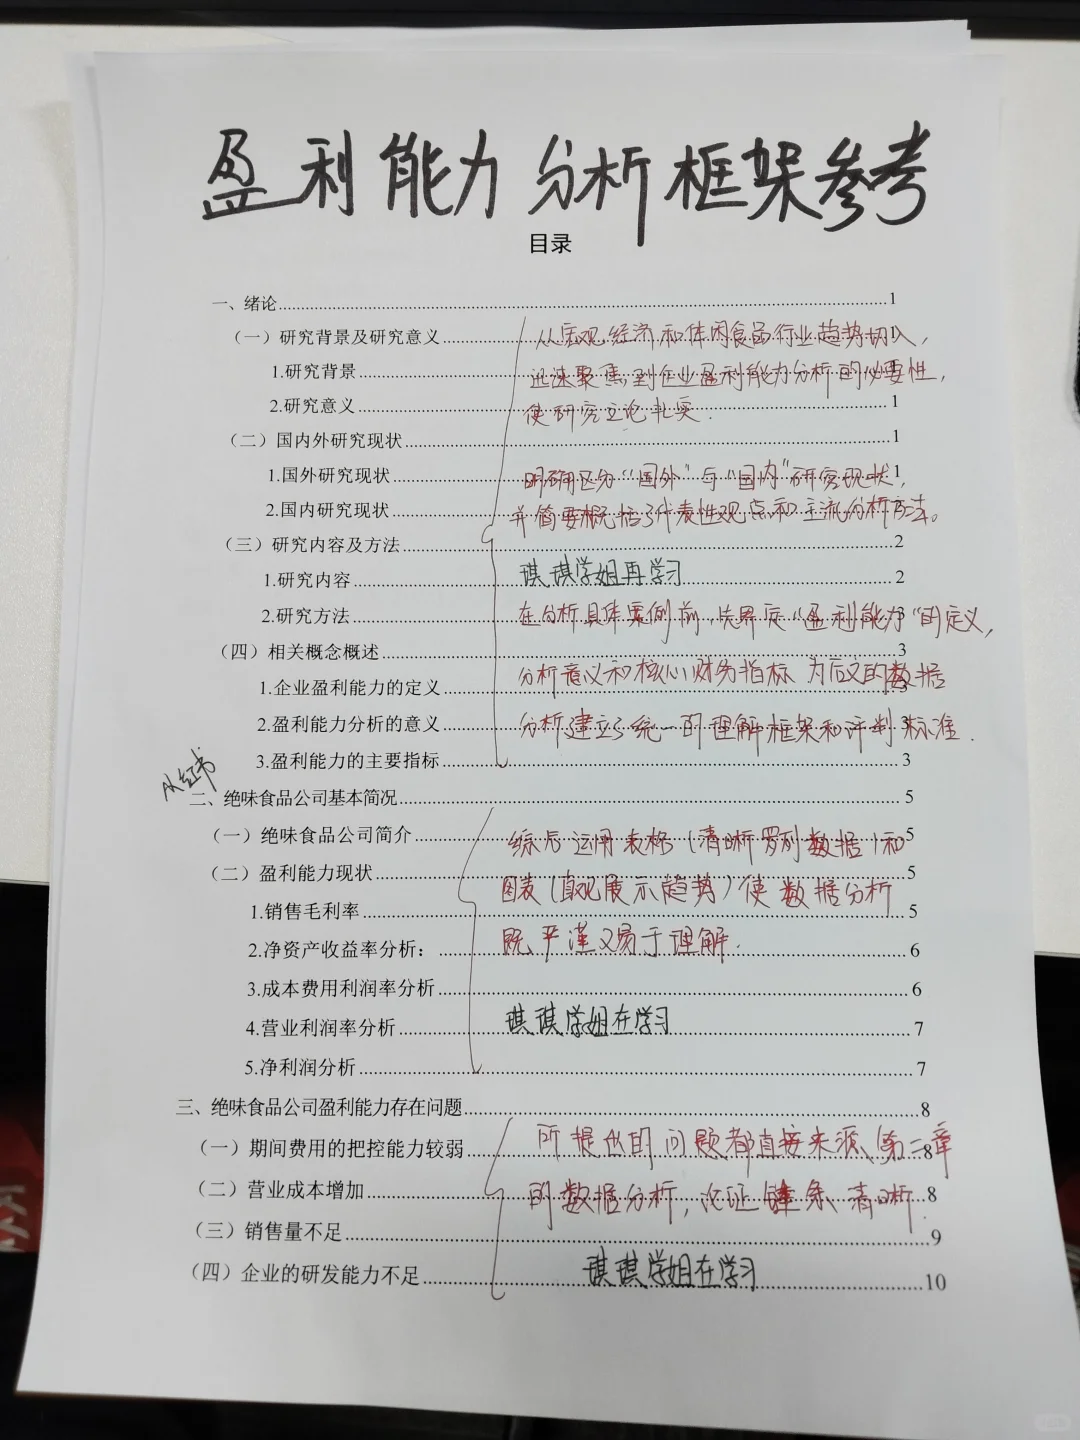 盈利能力分析框架参考
目录
一、绪论........1
（一）研究背景及研究意义........1
从宏观经济和休闲食品行业趋势切入，
1.研究背景........1
迅速聚焦到企业盈利能力分析的必要性，
2.研究意义........1
使研究立论扎实.
（二）国内外研究现状........1
1.国外研究现状........1
明确区分“国外”与“国内”研究现状，
2.国内研究现状
并简要概括了代表性观点和主流分析方法。
（三）研究内容及方法........2
1.研究内容........2
琪琪学姐再学习
2.研究方法........3
在分析具体案例前，先界定“盈利能力”的定义，
（四）相关概念概述........3
1.企业盈利能力的定义........3
分析意义和核心财务指标 为后文的数据
2.盈利能力分析的意义........3
分析建立了统一的理解框架和评判标准.
3.盈利能力的主要指标........3
小红书
二、绝味食品公司基本简况........5
（一）绝味食品公司简介........5
综合运用表格（清晰罗列数据）和
（二）盈利能力现状........5
图表（直观展示趋势）使数据分析
1.销售毛利率........5
2.净资产收益率分析：........6
既严谨又易于理解.
3.成本费用利润率分析........6
4.营业利润率分析........7
琪琪学姐在学习
5.净利润分析........7
三、绝味食品公司盈利能力存在问题........8
（一）期间费用的把控能力较弱........8
所提出的问题都直接来源第二章
（二）营业成本增加........8
的数据分析，论证链条清晰.
（三）销售量不足........9
（四）企业的研发能力不足........10
琪琪学姐在学习